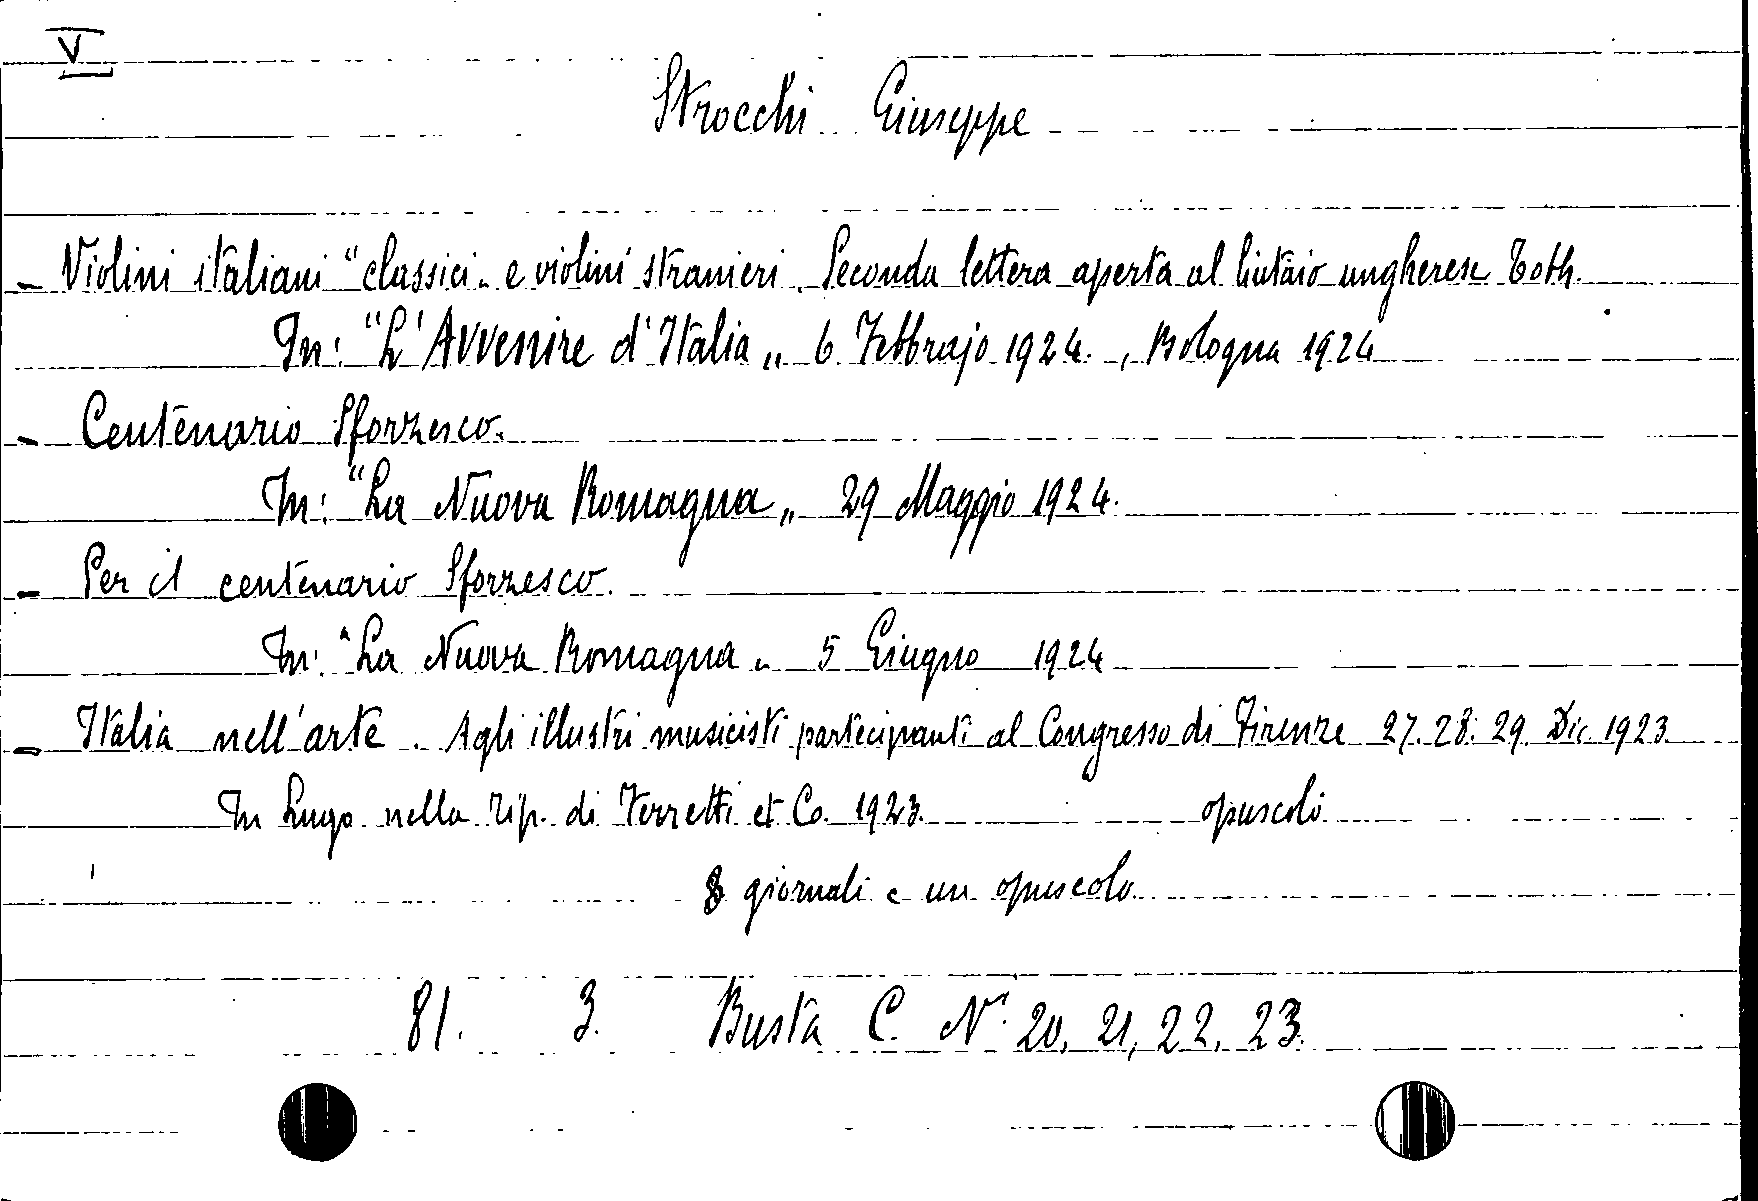 V
Strocchi Giuseppe
- Violini italiani "classici" e violini stranieri. Seconda lettera aperta al liutaio ungherese Toth.
In: "L'Avvenire d'Italia" 6 Febbrajo 1924., Bologna 1924
- Centenario Sforzesco.
In: "La Nuova Romagna" 29 Maggio 1924.
- Per il centenario Sforzesco.
In: "La Nuova Romagna" 5 Giugno 1924
- Italia nell'arte. Agli illustri musicisti partecipanti al Congresso di Firenze 27. 28. 29. Dic. 1923.
In Lugo nella Tip. di Ferretti et Co. 1923. opuscolo
giornali e un opuscolo
81. 3. Busta C. Nr. 20, 21, 22, 23.